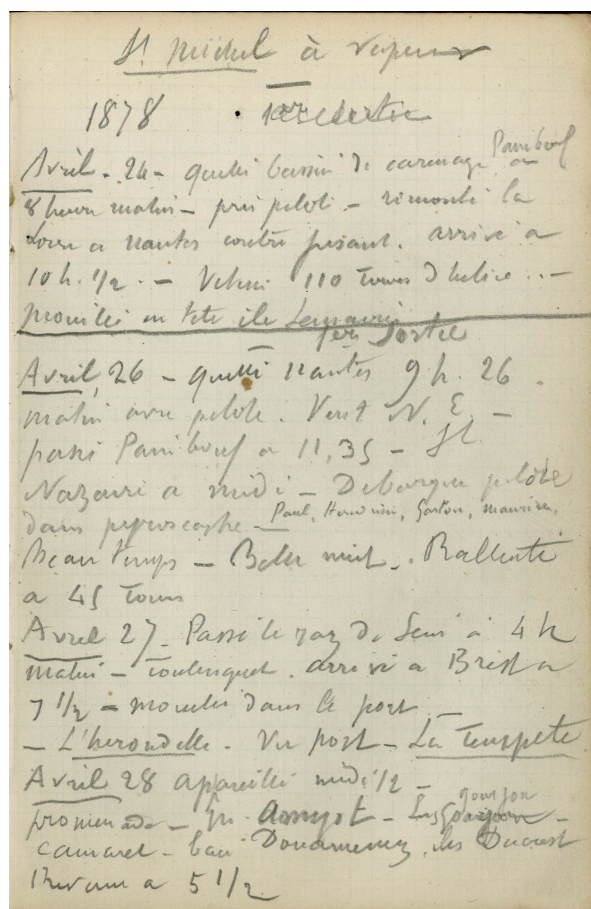 St Michel à vapeur
1878 1ere sortie
Avril - 24 - quitté bassin de carenage Paimboeuf a
8 heures matin - pris pilote - remonté la
Loire a Nantes contre jusant. arrivé a
10 h. 1/2 - 110 tours d'helice .. -
mouillé en tete ile Lemaire
1ere Sortie
Avril, 26 - quitté Nantes 9 h. 26
matin avec pilote. Vent N. E. -
passé Paimboeuf a 11,35 - St.
Nazaire a midi - Debarqué pilote
dans pyroscaphe - Paul, Gaston, Maurice,
Beau temps - Belle nuit -. Rallenti
a 45 tours
Avril 27 - Passé le raz de Sein à 4 h
matin - toulinguet. arrivé a Brest a
7 1/2 - mouillé dans le port -
- L'hirondelle. Vu port - La Tempete
Avril 28 appareillé midi 1/2 -
promenade - Mr. Amyot - Les gourjon
camaret - baie Douarnenez, les Ducoust
Revenu a 5 1/2